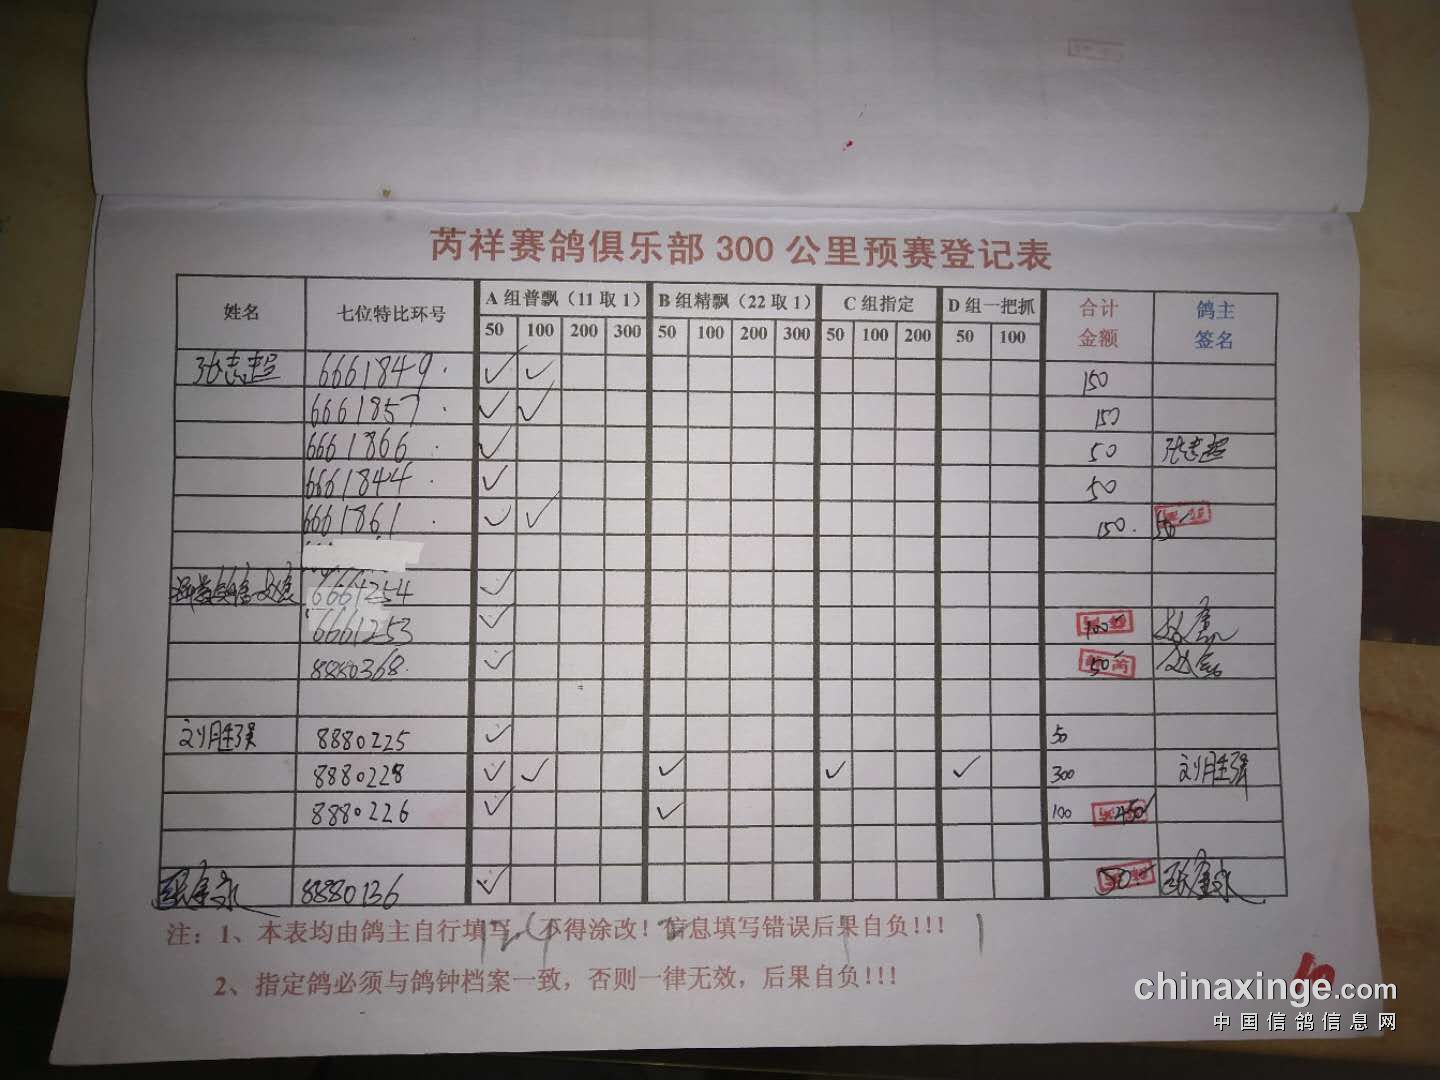 芮祥赛鸽俱乐部 300 公里预赛登记表
姓名 七位特比环号 A 组普飘（11 取 1） B 组精飘（22 取 1） C 组指定 D 组一把抓 合计金额 鸽主签名
50 100 200 300 50 100 200 300 50 100 200 50 100
张志超 6661849 ✓ ✓ 150
6661857 ✓ ✓ 150
6661866 ✓ 50 张志超
6661844 ✓ 50
6661861 ✓ ✓ 150
6661254 ✓
6661253 ✓ 100
8880368 ✓ 50
刘胜强 8880225 ✓ 50
8880228 ✓ ✓ ✓ ✓ ✓ 300 刘胜强
8880226 ✓ ✓ 100 450
8880136 ✓ 50
注：1、本表均由鸽主自行填写，不得涂改！信息填写错误后果自负!!!
12 4 2 1 1
2、指定鸽必须与鸽钟档案一致，否则一律无效，后果自负!!!
10
chinaxinge.com
中国信鸽信息网